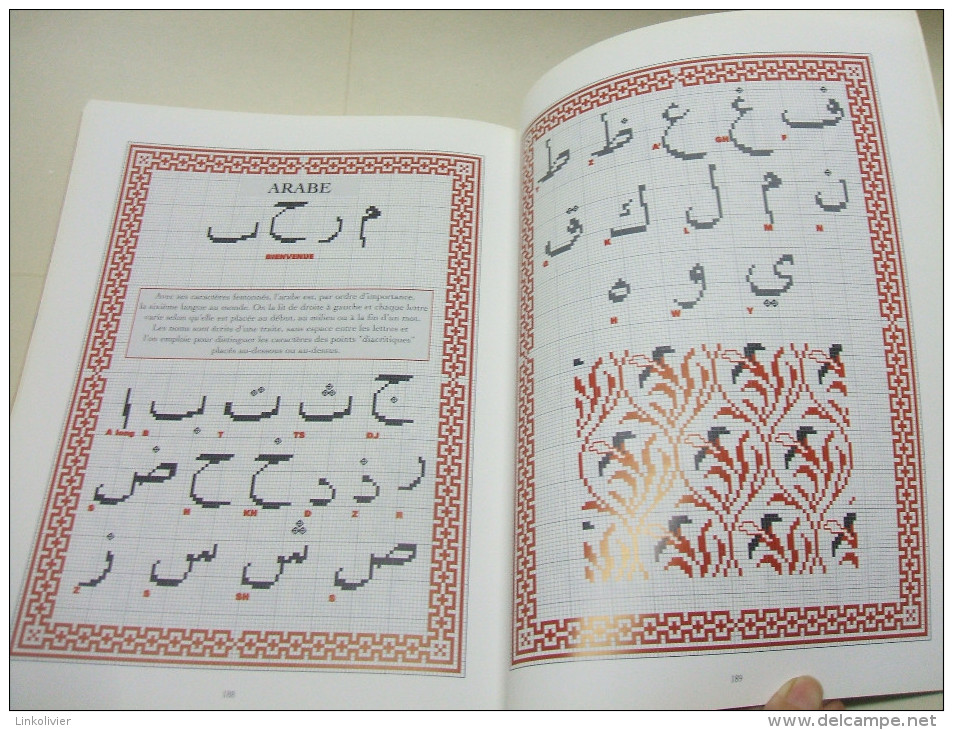 ARABE
م ر ح ٮ
BIENVENUE
Avec ses caractères festonnés, l'arabe est, par ordre d'importance,
la sixième langue au monde. On la lit de droite à gauche et chaque lettre
varie selon qu'elle est placée au début, au milieu ou à la fin d'un mot.
Les noms sont écrits d'une traite, sans espace entre les lettres et
l'on emploie pour distinguer les caractères des points "diacritiques"
placés au-dessous ou au-dessus.
ا ب ت ث ج
A long B T TS DJ
ض ح خ د ذ ر
S H KH D Z R
ز س ش ص
Z S SH S
188
ط ظ ع غ ف
T Z A' GH F
ق ك ل م ن
K L M N
ه و ي
H W Y
189
Linkolivier
www.delcampe.net